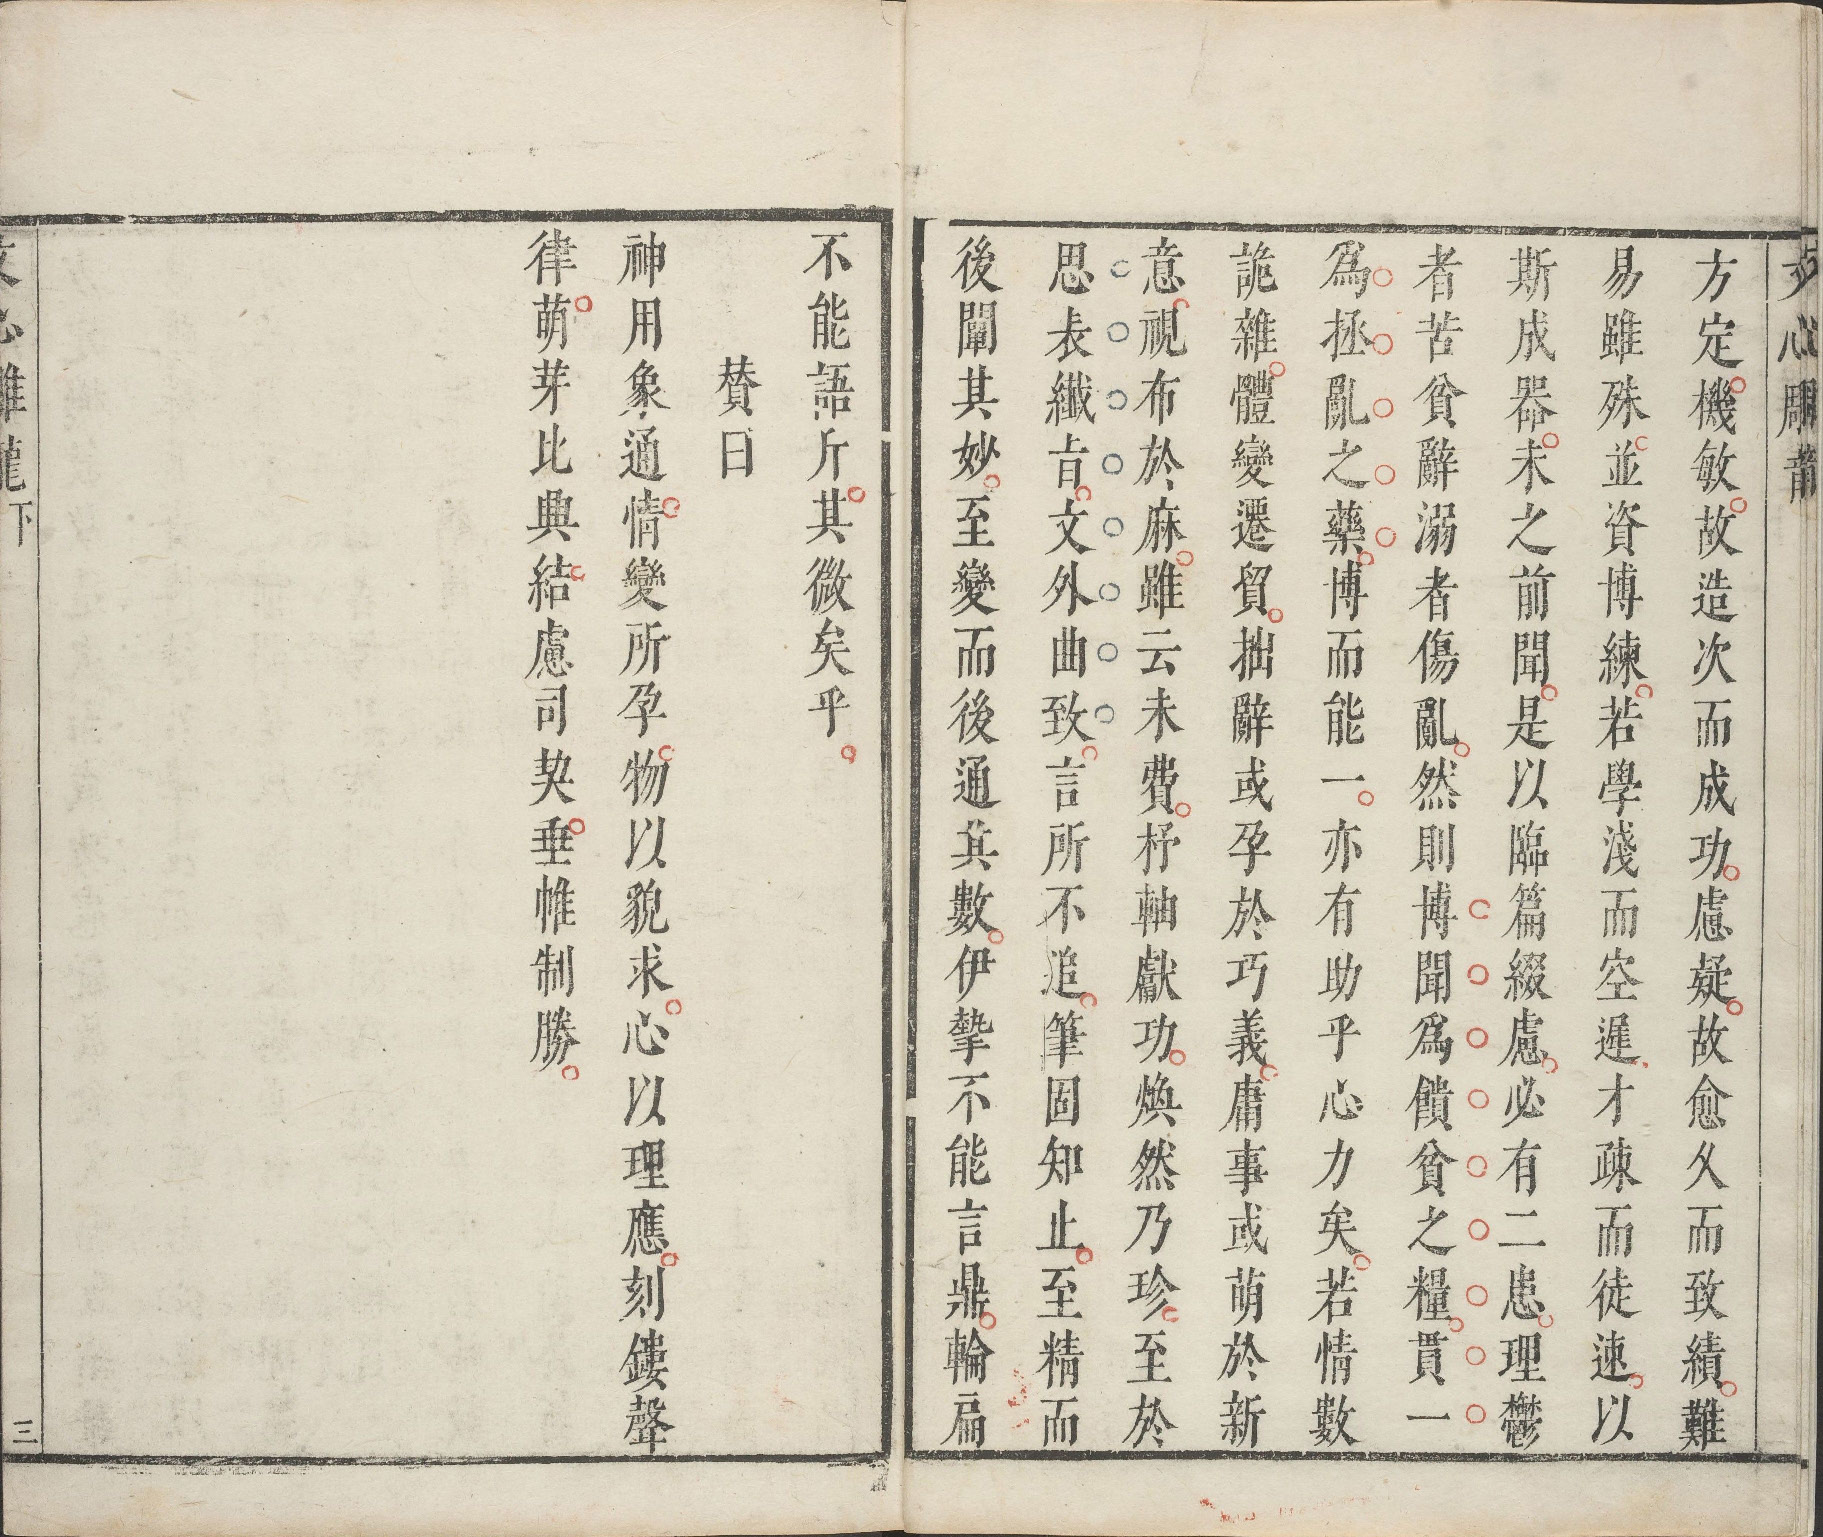 文心雕龍
方定機敏故造次而成功慮疑故愈久而致績難
易雖殊並資博練若學淺而空遲才疎而徒速以
斯成器未之前聞是以臨篇綴慮必有二患理鬱
者苦貧辭溺者傷亂然則博聞爲饋貧之糧貫一
爲拯亂之藥博而能一亦有助乎心力矣若情數
詭雜體變遷貿拙辭或孕於巧義庸事或萌於新
意視布於麻雖云未費杼軸獻功煥然乃珍至於
思表纖旨文外曲致言所不追筆固知止至精而
後闡其妙至變而後通其數伊摯不能言鼎輪扁
不能語斤其微矣乎
贊曰
神用象通情變所孕物以貌求心以理應刻鏤聲
律萌芽比興結慮司契垂帷制勝
文心雕龍下
三